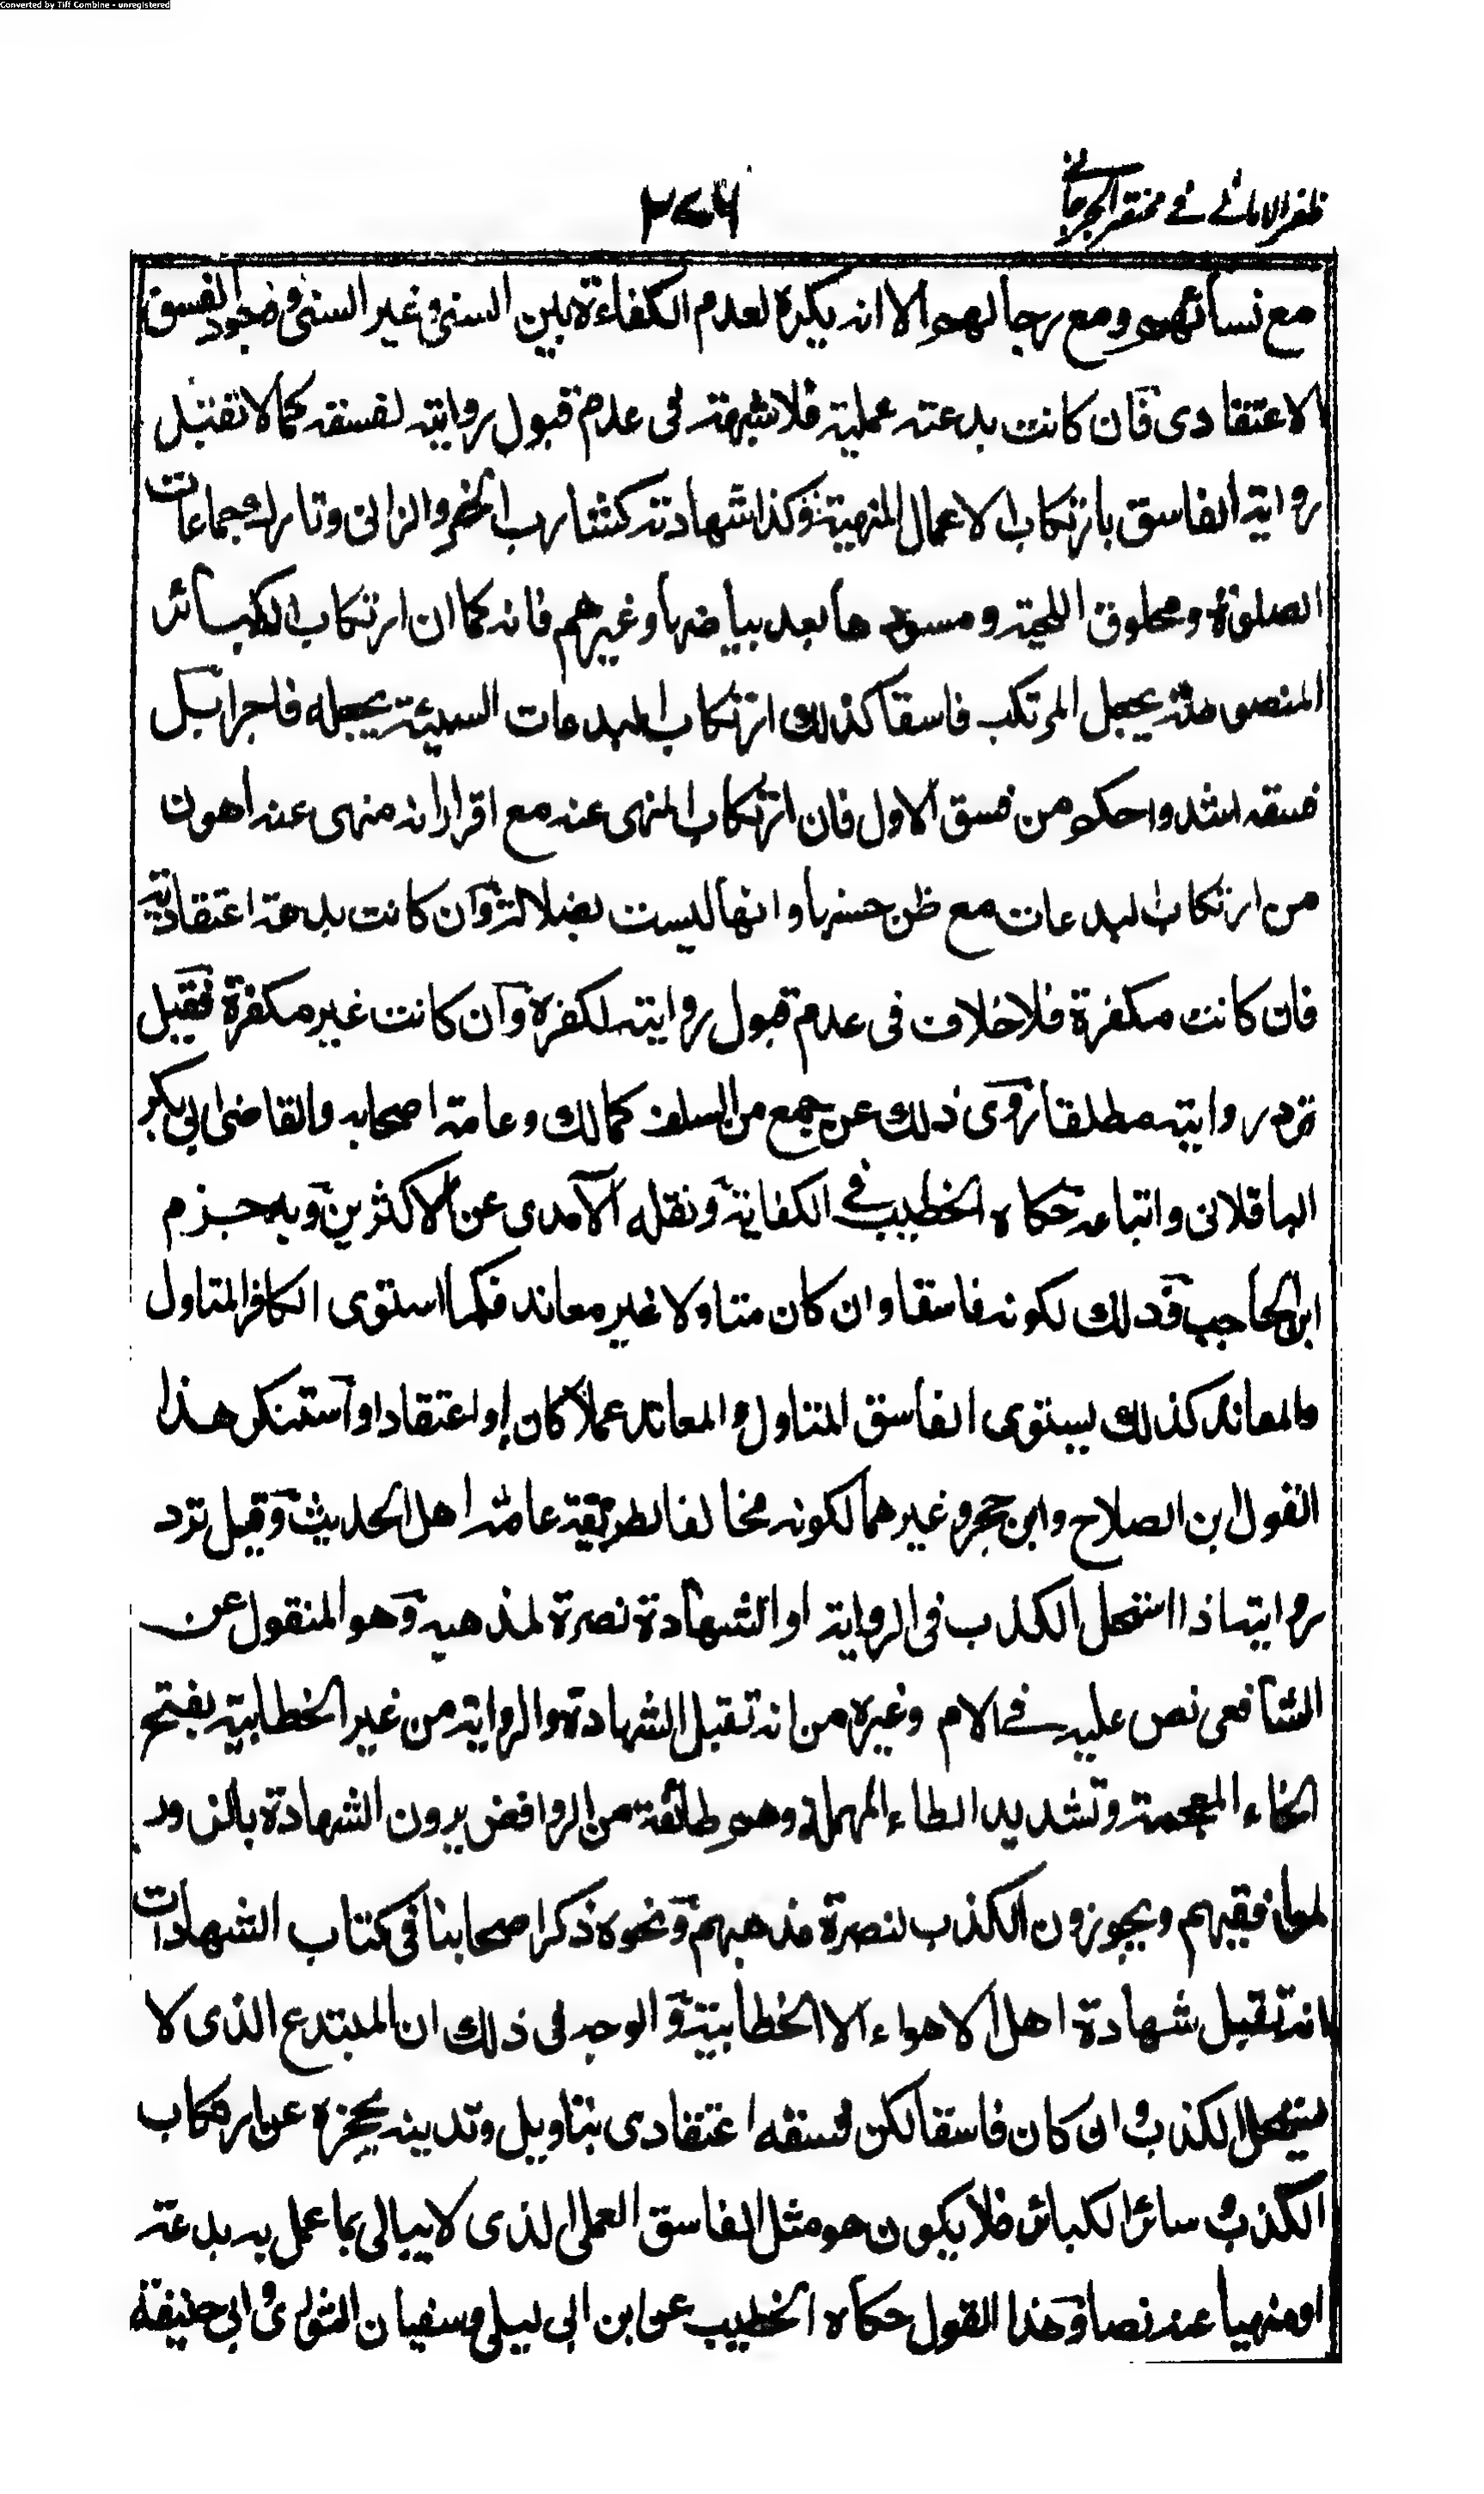 Converted by Tiff Combine - unregistered
ظفر الاماني في مختصر الجرجاني
٢٧٦
مع نسائهم ومع رجالهم الا انه يكره لعدم الكفاءة بين السني وغير السني ووجود الفسق
الاعتقادي فان كانت بدعته عملية فلا شبهة في عدم قبول روايته لفسقه كما لا تقبل
رواية الفاسق بارتكاب الاعمال المنهية وكذا شهادته كشارب الخمر والزاني وتارك جماعات
الصلوة ومحلوق اللحية ومسودها بعد بياضها وغيرهم فانه كما ان ارتكاب الكبائر
المنصوصة يجعل المرتكب فاسقا كذلك ارتكاب البدعات السيئة يجعله فاجرا بل
فسقه اشد واحكم من فسق الاول فان ارتكاب المنهي عنه مع اقرار انه منهي عنه اهون
من ارتكاب البدعات مع ظن حسنها وانها ليست بضلالة وان كانت بدعة اعتقادية
فان كانت مكفرة فلا خلاف في عدم قبول روايته لكفره وان كانت غير مكفرة فقيل
ترد روايته مطلقا روى ذلك عن جمع من السلف كمالك وعامة اصحابه والقاضي ابي بكر
الباقلاني واتباعه حكاه الخطيب في الكفاية ونقله الآمدي عن الاكثرين وبه جزم
ابن الحاجب وذلك لكونه فاسقا وان كان متاولا غير معاند فكما استوى الكافر المتاول
والمعاند كذلك يستوى الفاسق المتناول والمعاند عملا كان او اعتقادا واستنكر هذا
القول ابن الصلاح وابن حجر وغيرهما لكونه مخالفا لطريقة عامة اهل الحديث وقيل ترد
روايته اذا استحل الكذب في الرواية او الشهادة نصرة لمذهبه وهو المنقول عن
الشافعي نص عليه في الام وغيره من انه تقبل الشهادة والرواية من غير الخطابية بفتح
الخاء المعجمة وتشديد الطاء المهملة وهم طائفة من الروافض يرون الشهادة بالزور
لموافقيهم ويجوزون الكذب لنصرة مذهبهم ونحوه ذكر اصحابنا في كتاب الشهادات
انه تقبل شهادة اهل الاهواء الا الخطابية والوجه في ذلك ان المبتدع الذي لا
يستحل الكذب وان كان فاسقا لكن فسقه اعتقادي بتاويل وتدينه يحجزه عن ارتكاب
الكذب وسائر الكبائر فلا يكون هو مثل الفاسق العملي الذي لا يبالي بما عمل به بدعة
او منهيا عنه نصا وهذا القول حكاه الخطيب عن ابن ابي ليلى وسفيان الثوري وابي حنيفة